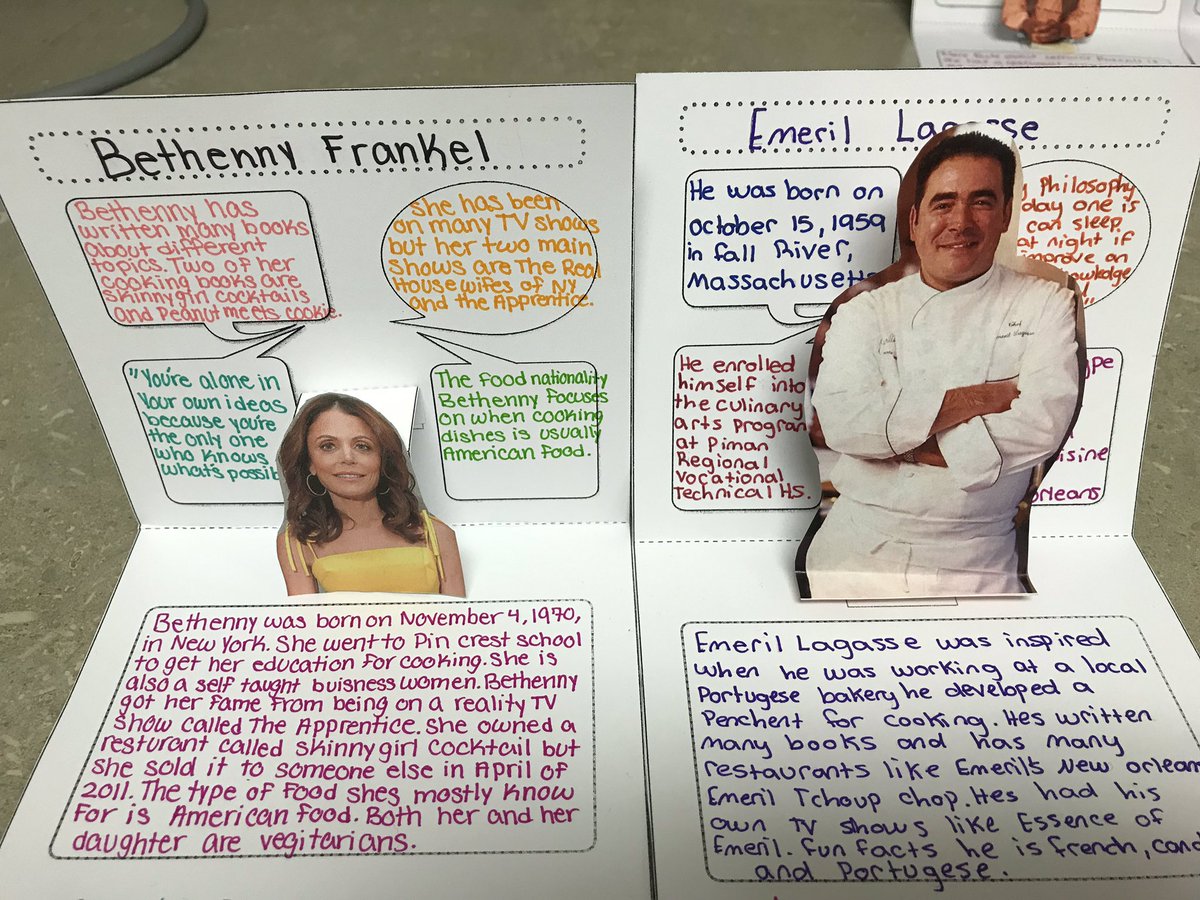 Bethenny Frankel
Bethenny has
written many books
About different
topics. Two of her
cooking books are
skinnygirl cocktails
and Peanut meets cookie.
She has been
on many TV shows
but her two main
shows are The Real
House wifes of NY
and the Apprentice.
"You're alone in
Your own ideas
because you're
the only one
who knows
what's possib
The food nationality
Bethenny focuses
on when cooking
dishes is usually
American food.
Bethenny was born on November 4, 1970,
in New York. She went to Pin crest school
to get her education for cooking. She is
also a self taught buisness women. Bethenny
got her fame from being on a reality TV
show called The Apprentice. She owned a
resturant called skinnygirl cocktail but
she sold it to someone else in April of
2011. The type of food shes mostly know
for is American food. Both her and her
daughter are vegitarians.
Emeril Lagasse
He was born on
october 15, 1959
in fall River,
Massachusetts
Philosophy
day one is
can sleep
at night if
improve on
He enrolled
himself into
the culinary
arts program
at Piman
Regional
Vocational
Technical HS.
Emeril Lagasse was inspired
when he was working at a local
Portugese bakery he developed a
Penchent for cooking. Hes written
many books and has many
restaurants like Emeril's New orlean
Emeril Tchoup chop. Hes had his
own TV shows like Essence of
Emeril. fun facts he is french, cana
and Portugese.